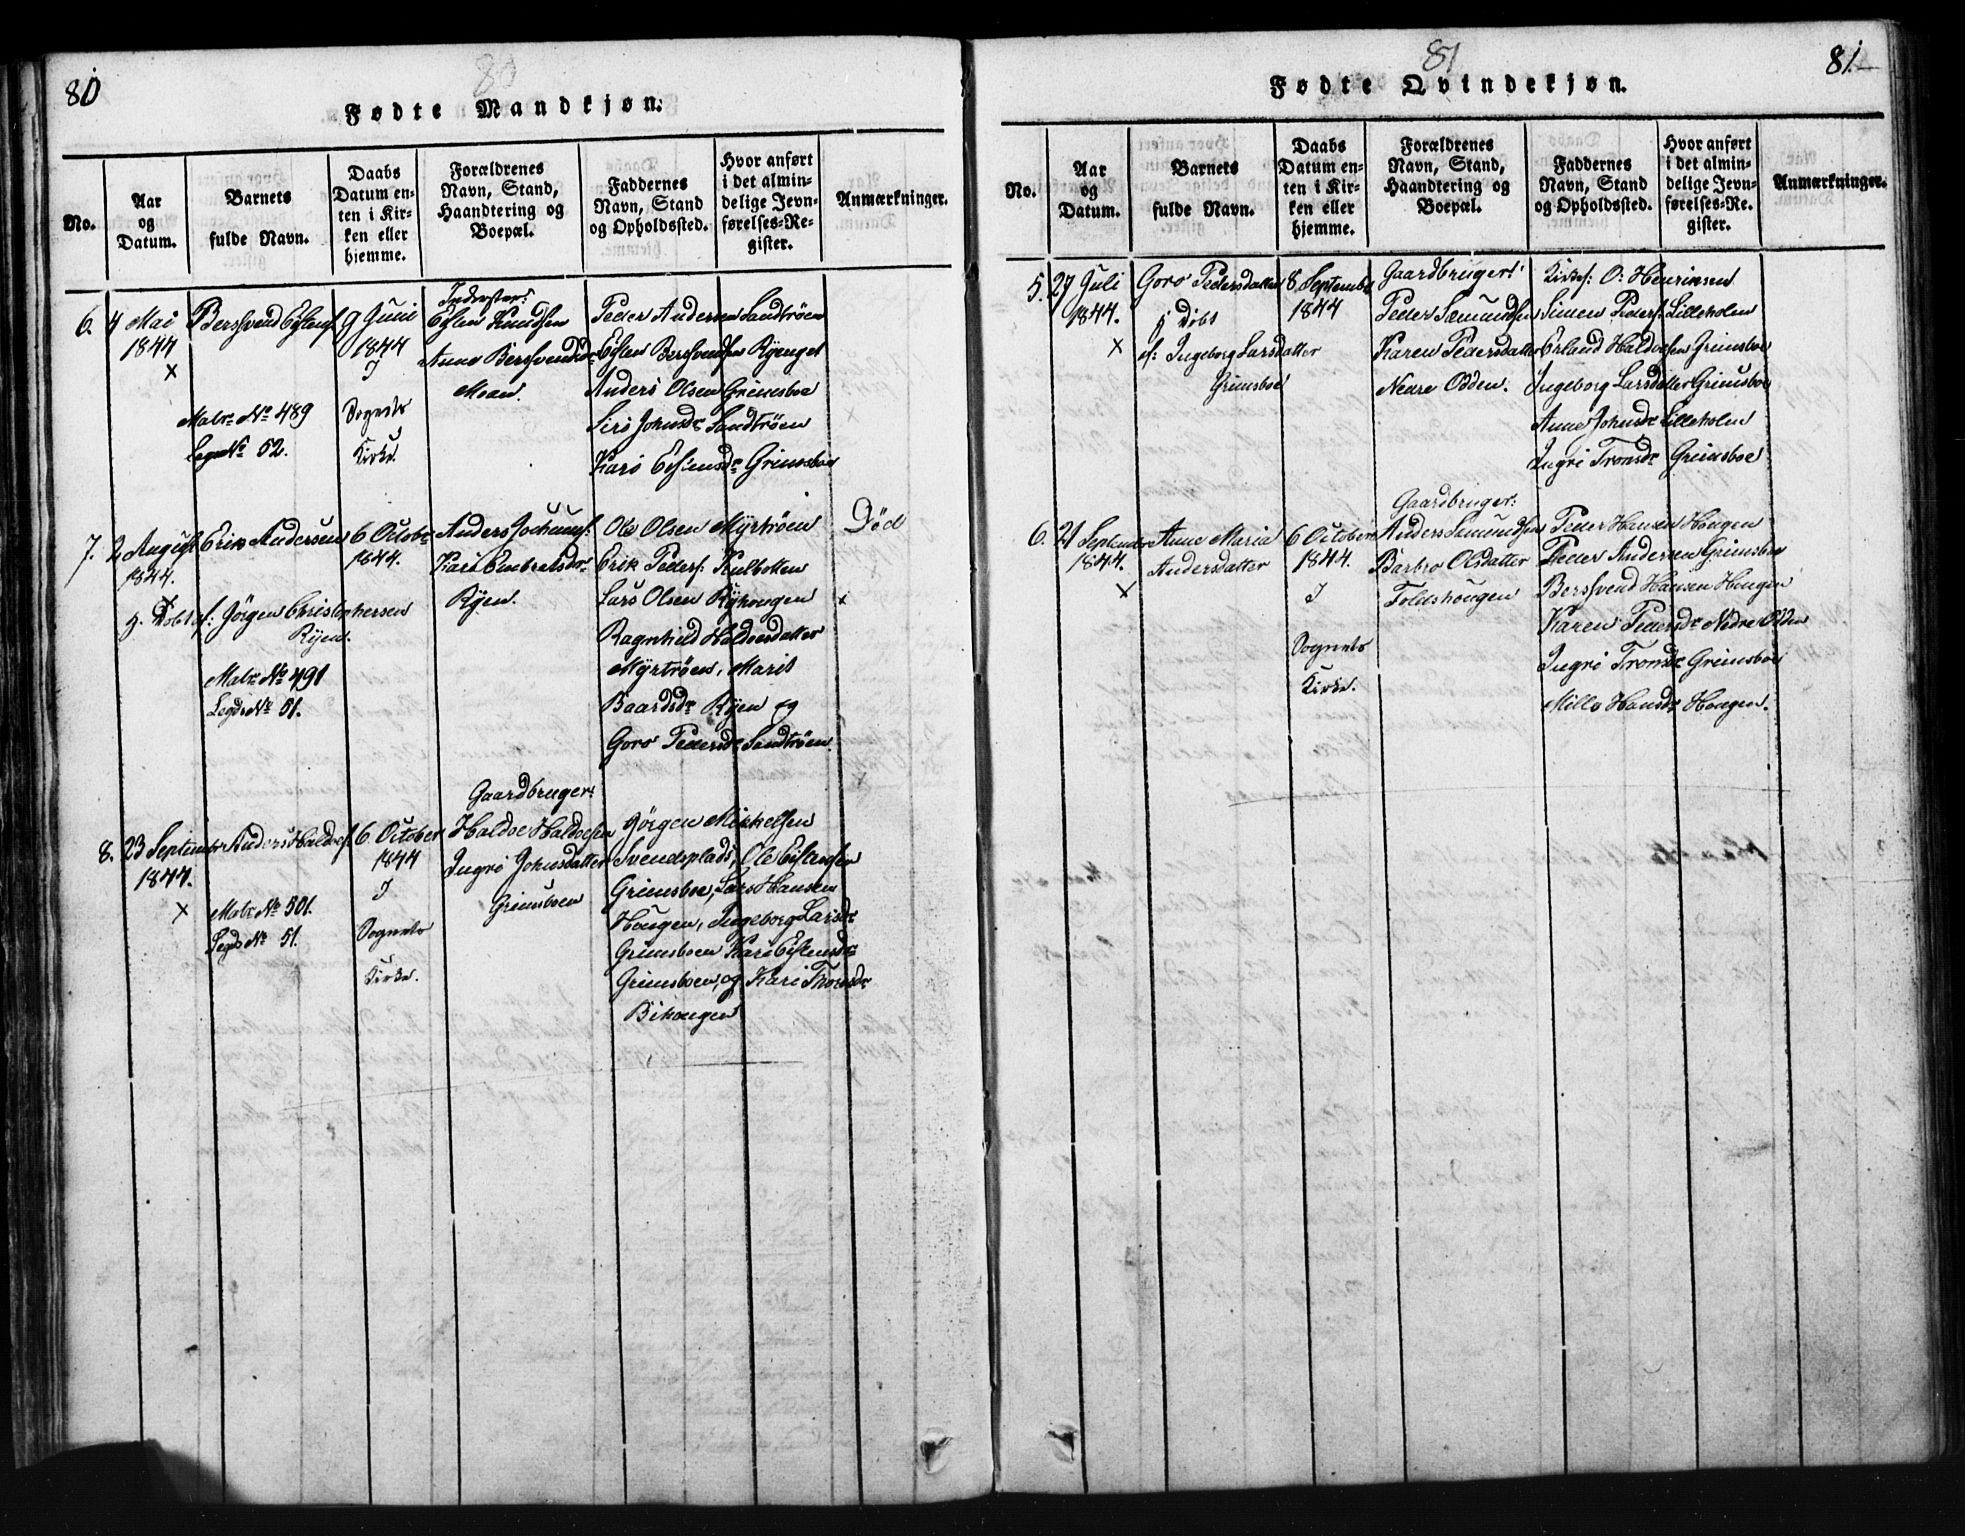 80
80
Fødte Mandkjøn.
No.
Aar
og
Datum.
Barnets
fulde Navn.
Daabs
Datum en-
ten i Kir-
ken eller
hjemme.
Forældrenes
Navn, Stand,
Haandtering og
Boepæl.
Faddernes
Navn, Stand
og Opholdssted.
Hvor anført
i det almin-
delige Jevn-
førelses-Re-
gister.
Anmærkninger.
6.
4 Mai
1844
×
Berssvend Estens.
Matr. No 489
Legds No 52.
9 Juni
1844
I
Sognets
Kirke.
Inderster:
Esten Knudsen
Anne Berssvendsdr
Moan.
Peder Andersen Sandtrøen
Esten Berssvendsen Ryenget
Anders Olsen Grimsboe
Siri Johnsdr Sandtrøen
Kari Estensdr Grimsboe
7.
2 August
1844.
×
Erik Andersen
hj. Døbt af: Jørgen Christophersen
Ryen.
Matr. No 491
Legds No 51.
6 Octobr
1844.
Anders Jochums.
Kari Embretsdr
Ryen.
Ole Olsen Myrtrøen
Erik Peders. Kulbotten
Lars Olsen Ryhougen
Ragnhild Haldoesdatter
Myrtrøen, Marit
Baardsdr Ryen og
Goro Pedersdr Sandtrøen.
Død
×
8.
23 September
1844.
×
Anders Haldoes.
Matr. No 501.
Legds No 51.
6 October
1844
I
Sognets
Kirke.
Gaardbruger:
Haldoe Haldoesen
Ingri Johnsdatter
Grimsboen
Jørgen Mikkelsen
Svendsplads, Ole Estensen
Grimsboe, Lars Hansen
Hougen, Ingeborg Larsdr
Grimsboen Kari Estensdr
Grimsboen, og Kari Thorsdr
Bihougen
81
81.
Fødte Qvindekjøn.
No.
Aar
og
Datum.
Barnets
fulde Navn.
Daabs
Datum en-
ten i Kir-
ken eller
hjemme.
Forældrenes
Navn, Stand,
Haandtering og
Boepæl.
Faddernes
Navn, Stand
og Opholdssted.
Hvor anført
i det almin-
delige Jevn-
førelses-Re-
gister.
Anmærkninger.
5.
27 Juli
1844.
×
Goro Pedersdatter
hj. Døbt
af: Ingeborg Larsdatter
Grimsboe
8 September
1844
Gaardbruger:
Peder Simundsen
Karen Pedersdatter
Nedre Odden.
Kirkes: O: Henriksen
Simen Peders. Lilleholen
Erland Haldoesen Grimsboe
Ingeborg Larsdatter Grimsboe
Anne Johnsdr Lilleholen
Ingri Tronsdr Grimsboe
6.
21 September
1844.
×
Anne Maria
Andersdatter
6 October
1844.
I
Sognets
Kirke.
Gaardbruger:
Anders Simundsen
Barbro Olsdatter
Toldshougen
Peder Hansen Hougen
Peder Andersen Grimsboe
Berssvend Hansen Hougen
Karen Pedersdr Nedre Odden
Ingri Tronsdr Grimsboe
Mille Hansdr Hougen.